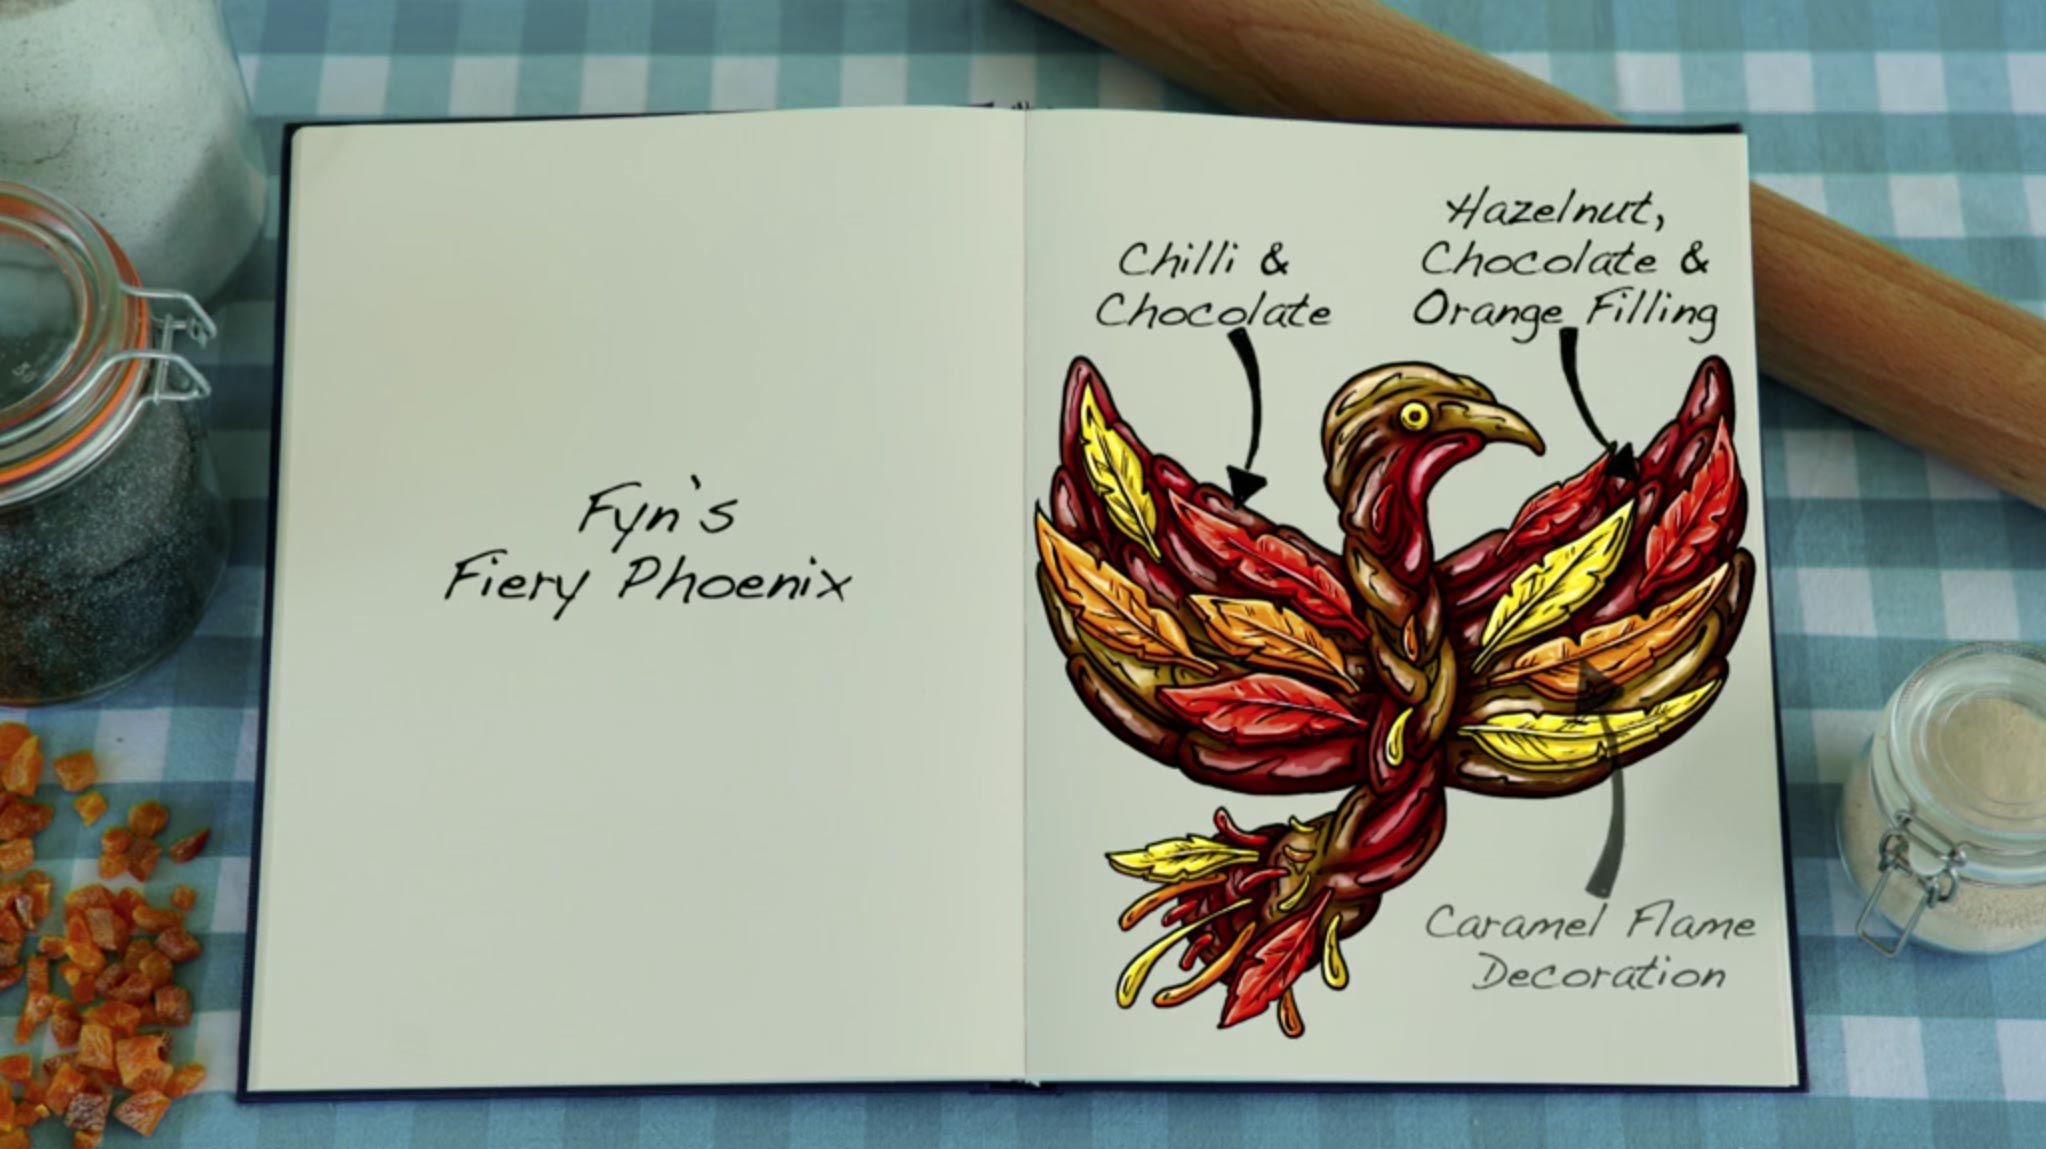 Fyn's
Fiery Phoenix
Chilli &
Chocolate
Hazelnut,
Chocolate &
Orange Filling
Caramel Flame
Decoration